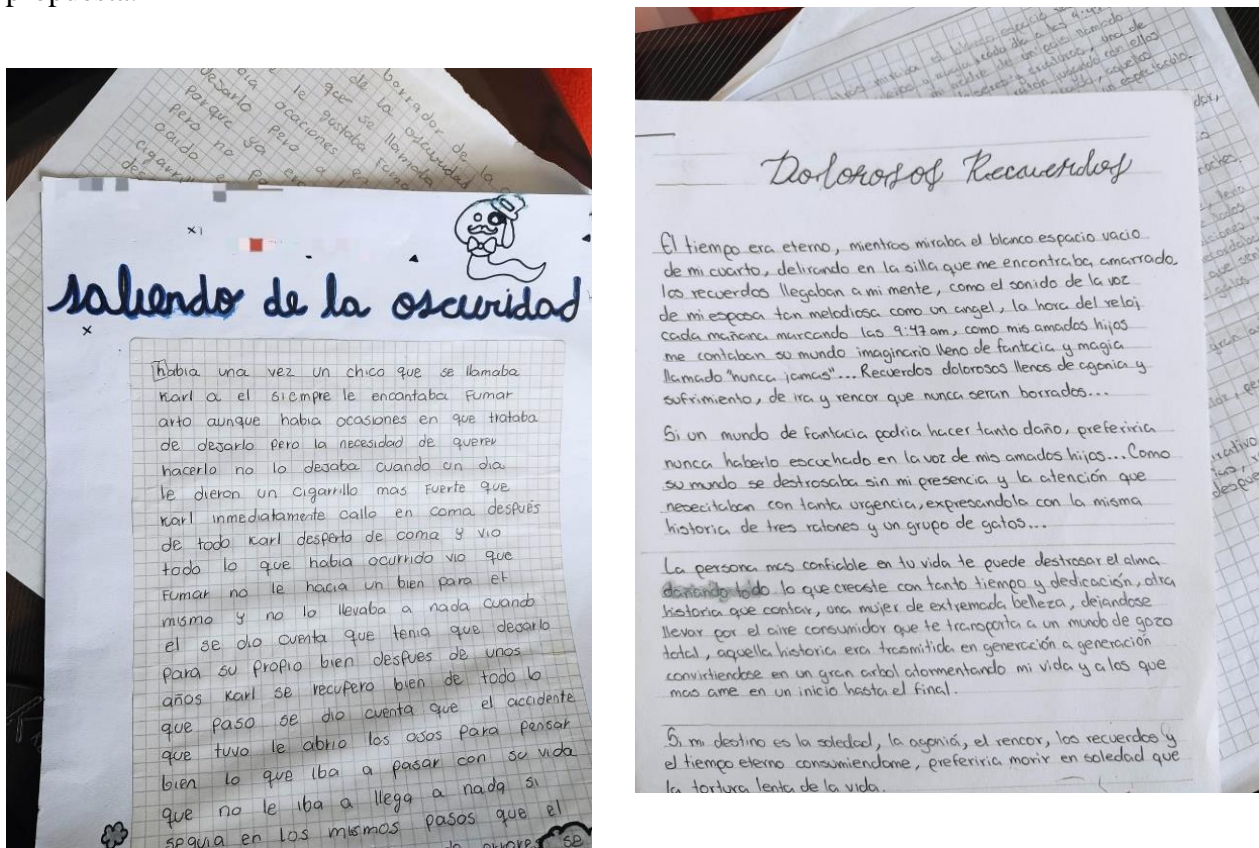 propuesta.
borrador de la
de la oscuridad
que se llamaba
le gustaba fuma
ocaciones en
desarlo pero
porque ya
pero no
caido
cigarri
saliendo de la oscuridad
habia una vez un chico que se llamaba
Karl a el siempre le encantaba Fumar
arto aunque habia ocasiones en que trataba
de desarlo pero la necesidad de querer
hacerlo no lo desaba cuando un dia
le dieron un cigarrillo mas Fuerte que
Karl inmediatamente callo en coma después
de todo Karl desperto de coma y vio
todo lo que habia ocurrido vio que
Fumar no le hacia un bien para el
mismo y no lo llevaba a nada cuando
el se dio cuenta que tenia que desarlo
para su propio bien despues de unos
años Karl se recupero bien de todo lo
que paso se dio cuenta que el accidente
que tuvo le abrio los osos para pensar
bien lo que iba a pasar con su vida
que no le iba a llega a nada si
seguia en los mismos pasos que el
se
Dolorosos Recuerdos
El tiempo era eterno, mientras miraba el blanco espacio vacio
de mi cuarto, delirando en la silla que me encontraba amarrado.
los recuerdos llegaban a mi mente, como el sonido de la voz
de mi esposa tan melodiosa como un angel, la hora del reloj
cada mañana marcando las 9:47 am, como mis amados hijos
me contaban su mundo imaginario lleno de fantacia y magia
llamado "nunca jamas"... Recuerdos dolorosos llenos de agonia y
sufrimiento, de ira y rencor que nunca seran borrados...
Si un mundo de fantacia podria hacer tanto daño, preferiria
nunca haberlo escuchado en la voz de mis amados hijos... Como
su mundo se destrosaba sin mi presencia y la atención que
nesecitaban con tanta urgencia, expresandola con la misma
historia de tres ratones y un grupo de gatos...
La persona mas confiable en tu vida te puede destrosar el alma
dañando todo lo que creaste con tanto tiempo y dedicación, otra
historia que contar, una mujer de extremada belleza, dejandose
llevar por el aire consumidor que te transporta a un mundo de gozo
total, aquella historia era trasmitida en generación a generación
convirtiendose en un gran arbol atormentando mi vida y a los que
mas ame en un inicio hasta el final.
Si mi destino es la soledad, la agonia, el rencor, los recuerdos y
el tiempo eterno consumiendome, preferiria morir en soledad que
la tortura lenta de la vida.